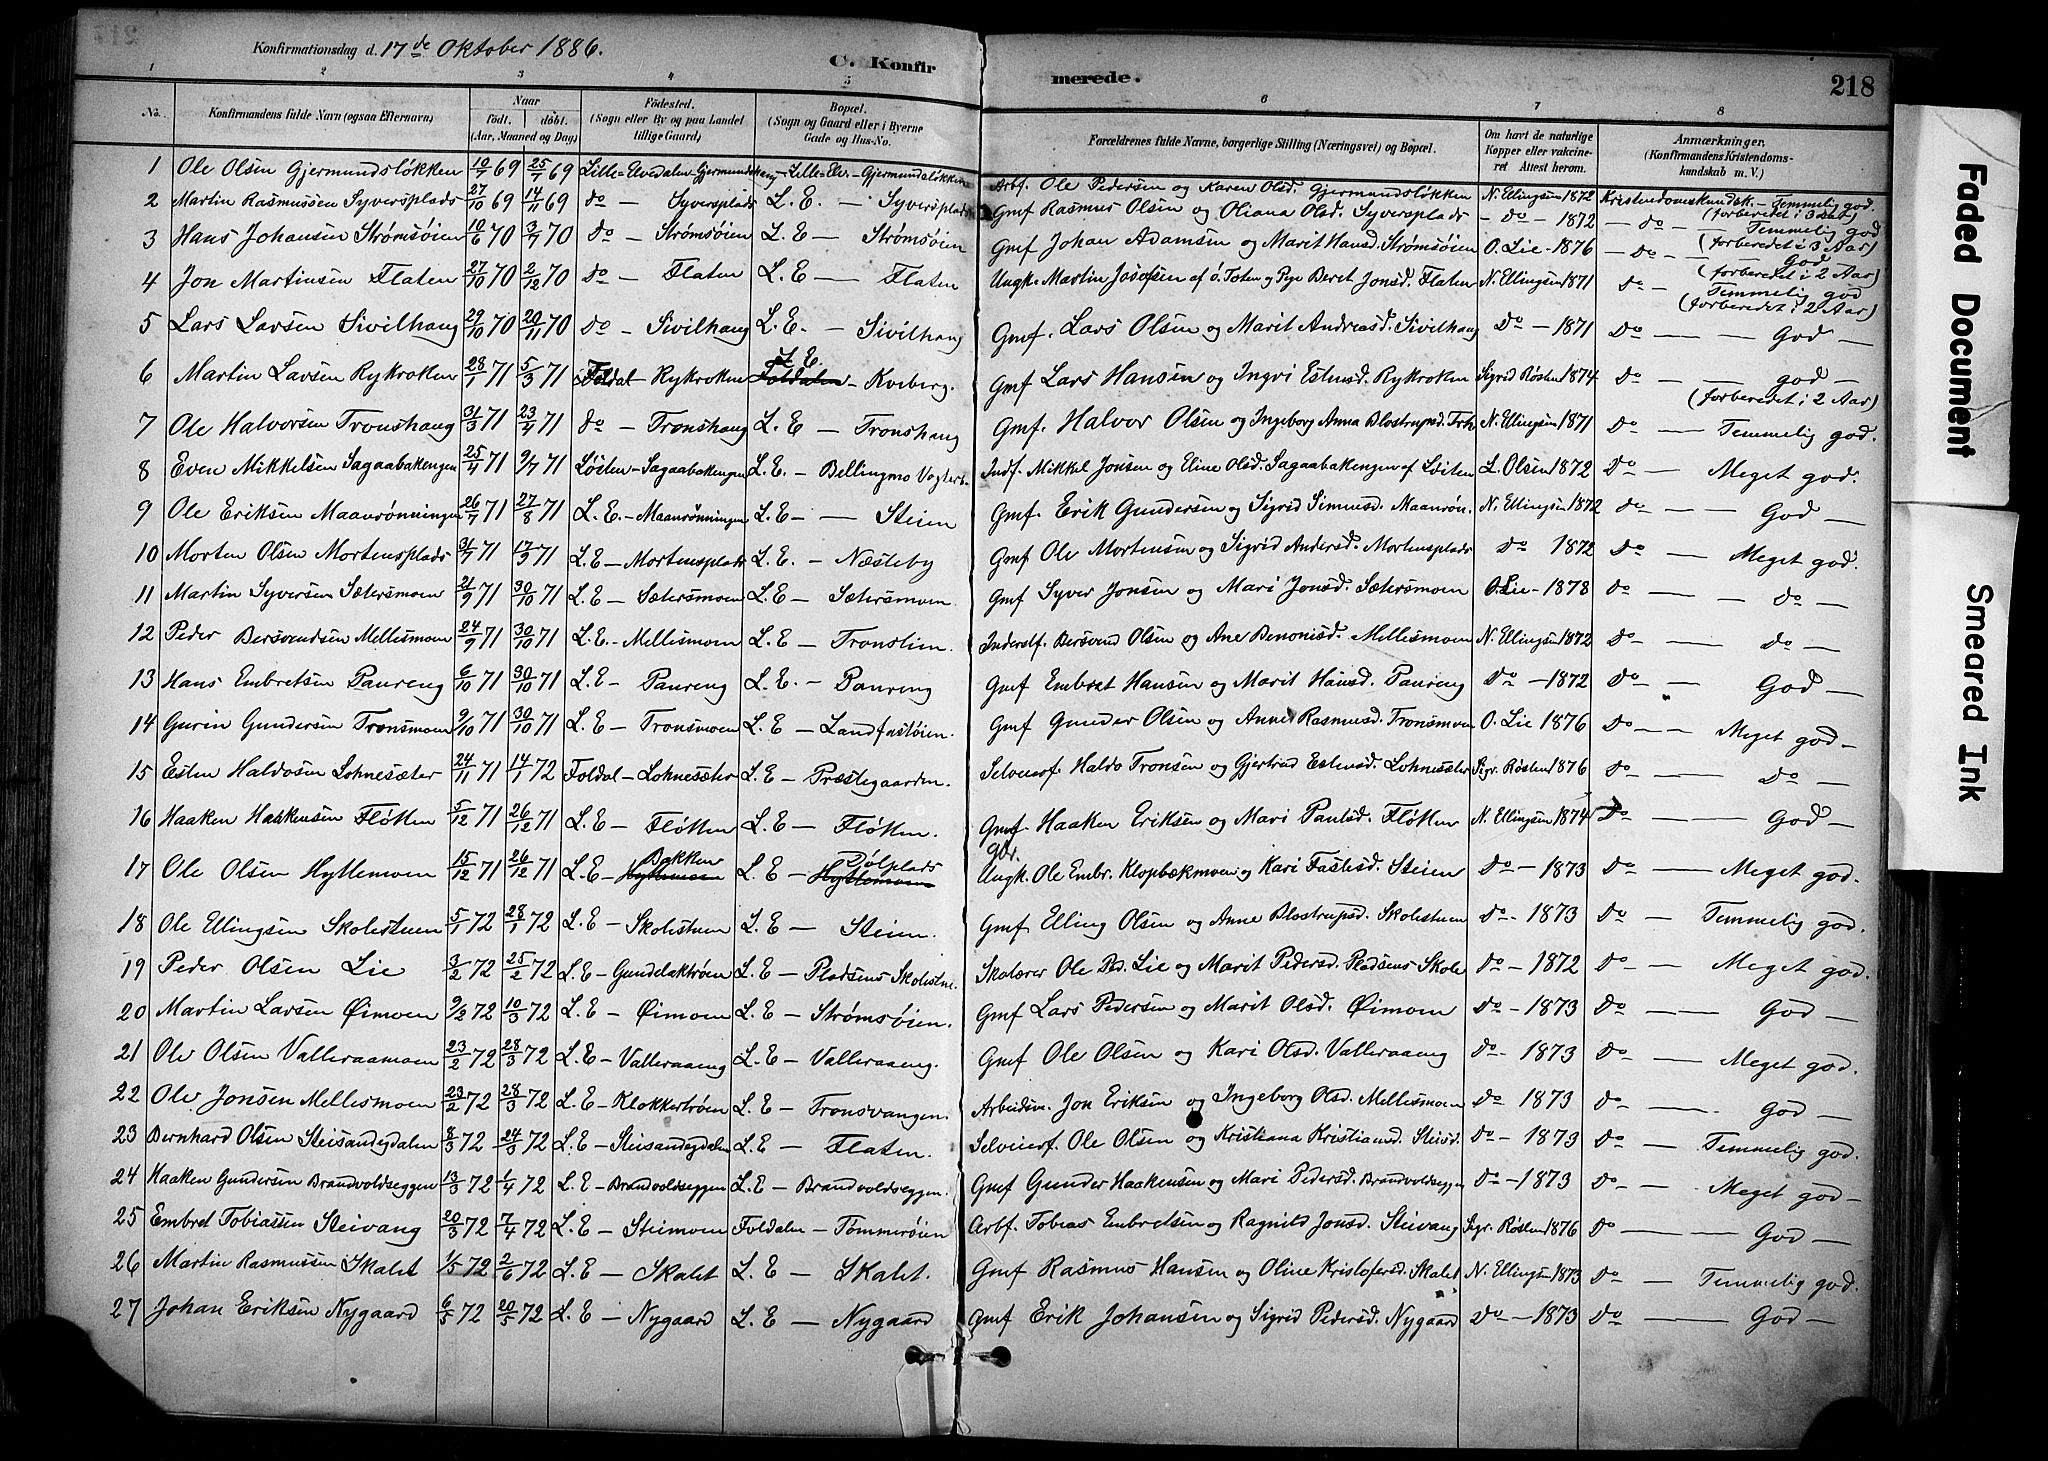 Konfirmationsdag d. 17de Oktober 1886.
C. Konfirmerede.
218
1 2 3 4 5 6 7 8
No. | Konfirmandens fulde Navn (ogsaa Efternavn) | Naar födt. döbt. (Aar, Maaned og Dag) | Födested. (Sogn eller By og paa Landet tillige Gaard) | Bopæl. (Sogn og Gaard eller i Byerne Gade og Hus-No. | Forældrenes fulde Navne, borgerlige Stilling (Næringsvei) og Bopæl. | Om havt de naturlige Kopper eller vakcineret Attest herom. | Anmærkninger. (Konfirmandens Kristendomskundskab m. V.)
1 Ole Olsen Gjermundsløkken 10/1 69 25/1 69 Lille-Elvedalen-Gjermundshaug - Lille-Elv. - Gjermundsløkken Arbf. Ole Pedersen og Karen Olsd. Gjermundsløkken N. Ellingsen 1872 Kristendomskundsk. - Temmelig god. (forberedet i 3 Aar)
2 Martin Rasmussen Syversplads 27/10 69 14/11 69 do - Syversplads L. E. - Syversplads Gmf Rasmus Olsen og Oliana Olsd. Syversplads - do - 1872 - do - Temmelig god (forberedet i 3 Aar)
3 Hans Johansen Strømsöien 10/6 70 3/7 70 do - Strömsöien L. E - Strömsöien Gmf Johan Adamsen og Marit Hansd. Strømsøien O. Lie - 1876 - do - God (forberedet i 2 Aar)
4 Jon Martinsen Flaten 27/10 70 2/12 70 do - Flaten L. E - Flaten Ungk. Martin Josefsen af ö. Toten og Pige Beret Jonsd. Flaten N. Ellingsen 1871 do - Temmelig god (forberedet i 2 Aar)
5 Lars Larsen Sivilhaug 29/10 70 20/11 70 do - Sivilhaug L. E. - Sivilhaug Gmf. Lars Olsen og Marit Andreasd. Sivilhaug do - 1871 do - God -
6 Martin Larsen Rykroken 28/1 71 5/3 71 Foldal - Rykroken L. E. Foldalen - Kveberg. Gmf Lars Hansen og Ingri Estensd. Rykroken Sigrid Røsten 1874 do - god - (forberedet i 2 Aar)
7 Ole Halvorsen Tronshaug 31/3 71 23/4 71 do - Tronshaug L. E - Tronshaug Gmf. Halvor Olsen og Ingeborg Anna Blostrupsd. Trh. N. Ellingsen 1871 do - Temmelig god.
8 Even Mikkelsen Sagaabakengen 25/4 71 9/7 71 Løiten - Sagaabakengen L. E. - Bellingmo Vogterb. Indf. Mikkel Jonsen og Eline Olsd. Sagaabakengen af Løiten L. Olsen 1872 do - Meget god.
9 Ole Eriksen Maanrønningen 26/7 71 27/8 71 L. E. - Maanrønningen L. E - Steien Gmf. Erik Gundersen og Sigrid Simensd. Maanrøn. N. Ellingsen 1872 do - God -
10 Morten Olsen Mortensplads 31/7 71 17/9 71 L. E - Mortensplads L. E. - Næsteby Gmf Ole Mortensen og Sigrid Andersd. Mortensplads do 1872 do - Meget god.
11 Martin Syversen Sætersmoen 21/9 71 30/10 71 L. E - Sætersmoen L. E - Sætersmoen. Gmf Syver Jonsen og Mari Jonsd. Sætersmoen O. Lie - 1878 do - do -
12 Peder Bersvendsen Mellesmoen 24/9 71 30/10 71 L. E. - Mellesmoen L. E. - Tronslien. Inderstf. Bersvend Olsen og Ane Benonisd. Mellesmoen N. Ellingsen 1872 do - do -
13 Hans Embretsen Paureng 6/10 71 30/10 71 L. E - Paureng L. E. - Paureng Gmf Embret Hansen og Marit Hansd. Paureng do - 1872 do - God -
14 Gurin Gundersen Tronsmoen 9/10 71 30/10 71 L. E - Tronsmoen L. E - Landfastöien. Gmf Gunder Olsen og Anne Rasmusd. Tronsmoen O. Lie 1876 do - Meget god -
15 Esten Haldosen Lohnesæter 24/11 71 14/1 72 Foldal - Lohnesæter L. E - Præstegaarden. Selveierf. Haldo Tronsen og Gjertrud Estensd. Lohnesæter Sigr. Røsten 1876 do - do -
16 Haaken Haakensen Flötten 5/12 71 26/12 71 L. E - Flötten L. E - Flötten. Gmf. Haaken Eriksen og Mari Paulsd. Flötten N. Ellingsen 1874 do - God -
17 Ole Olsen Hyttemoen 15/12 71 26/12 71 L. E - Bakken Hyttemoen L. E - Dølplads Hyttemoen Gbr. Ungk. Ole Embr. Klopbækmoen og Kari Fastesd. Steien do - 1873 do - Meget god.
18 Ole Ellingsen Skolestuen 5/1 72 28/1 72 L. E - Skolestuen L. E - Steien. Gmf Elling Olsen og Anne Blostrupsd. Skolestuen do - 1873 do - Temmelig god.
19 Peder Olsen Lie 3/2 72 25/2 72 L. E - Gundelaktrøen L. E - Pladsens Skolestue. Skolærer Ole Ped. Lie og Marit Pedersd. Pladsens Skole do - 1872 do - Meget god.
20 Martin Larsen Øimoen 9/2 72 10/3 72 L. E - Øimoen L. E - Strömsöien. Gmf Lars Pedersen og Marit Olsd. Øimoen do - 1873 do - God -
21 Ole Olsen Valleraamoen 23/2 72 28/3 72 L. E - Valleraaeng L. E - Valleraaeng. Gmf Ole Olsen og Kari Olsd. Valleraaeng do - 1873 do - Meget god.
22 Ole Jonsen Mellesmoen 23/2 72 28/3 72 L. E - Klokkertrøen L. E - Tronsvangen. Arbeidsm. Jon Eriksen og Ingeborg Olsd. Mellesmoen do - 1873 do - God -
23 Bernhard Olsen Steisandegdalen 8/3 72 24/3 72 L. E - Steisandegdalen L. E - Flaten. Selveierf. Ole Olsen og Kristiana Kristiansd. Steisd. do - 1873 do - Temmelig god.
24 Haaken Gundersen Brandvoldseggen 13/3 72 1/4 72 L. E - Brandvoldseggen L. E - Brandvoldseggen. Gmf Gunder Haakensen og Mari Pedersd. Brandvoldseggen do - 1873 do - Meget god -
25 Embret Tobiassen Steivang 20/3 72 7/4 72 L. E - Steimoen Foldalen - Tömmeröien Arbf. Tobias Embretsen og Ragnild Jonsd. Steivang Sigr. Røsten 1876 do - God -
26 Martin Rasmussen Skalet 1/5 72 2/6 72 L. E - Skalet L. E - Skalet. Gmf Rasmus Hansen og Oline Kristofersd. Skalet N. Ellingsen 1873 do - Temmelig god.
27 Johan Eriksen Nygaard 6/5 72 20/5 72 L. E - Nygaard L. E - Nygaard Gmf Erik Johansen og Sigrid Pedersd. Nygaard do - 1873 do - God -
Faded Document
Smeared Ink